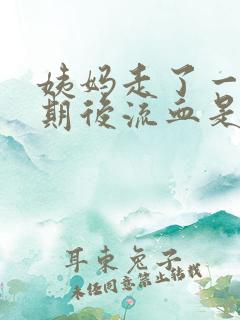 姨妈走了一
期后流血是
耳东兔子
未经同意禁止转载